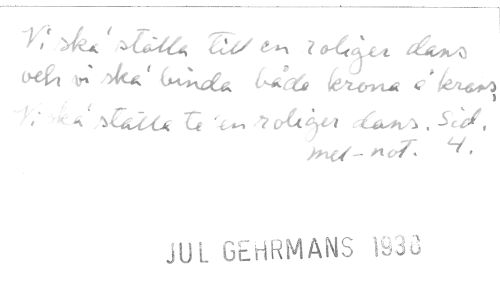 Vi ska' ställa till en roliger dans
och vi ska' binda både krona å krans,
Vi ska' ställa te' en roliger dans. Sid.
mel-not. 4.
JUL GEHRMANS 1930